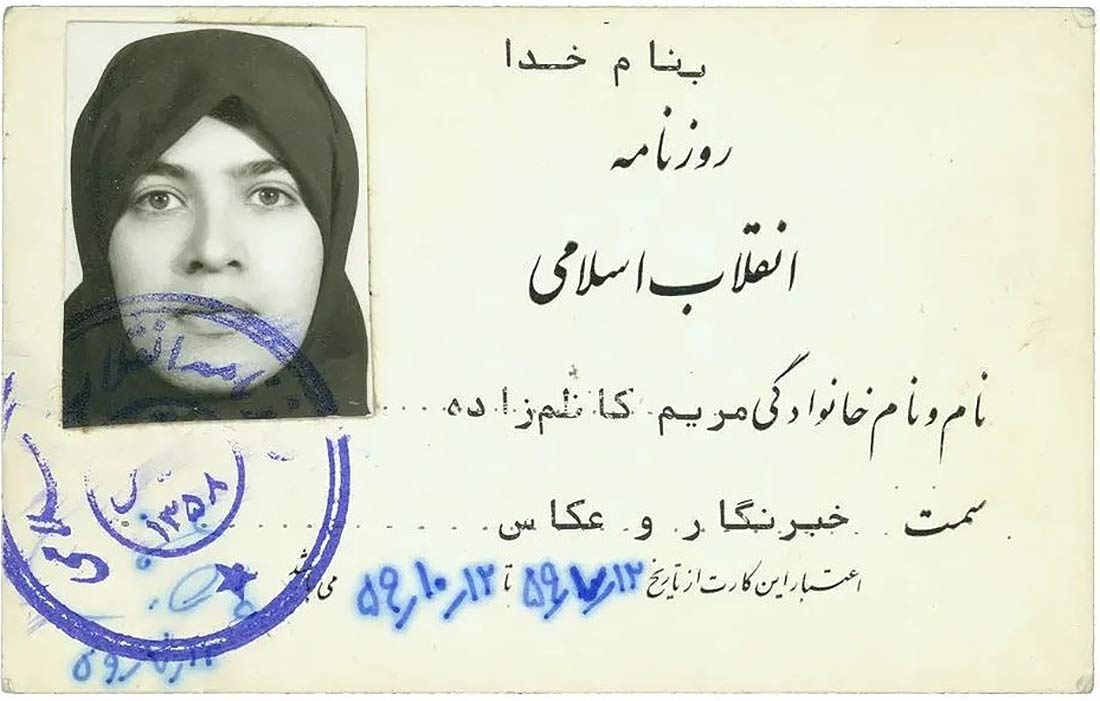 بنام خدا
روزنامه
انقلاب اسلامی
نام و نام خانوادگی مریم کاظم‌زاده
سمت خبرنگار و عکاس
اعتبار این کارت از تاریخ ۱۲ر۷ر۵۹ تا ۱۲ر۱۰ر۵۹ می‌باشد
۱۳۵۸